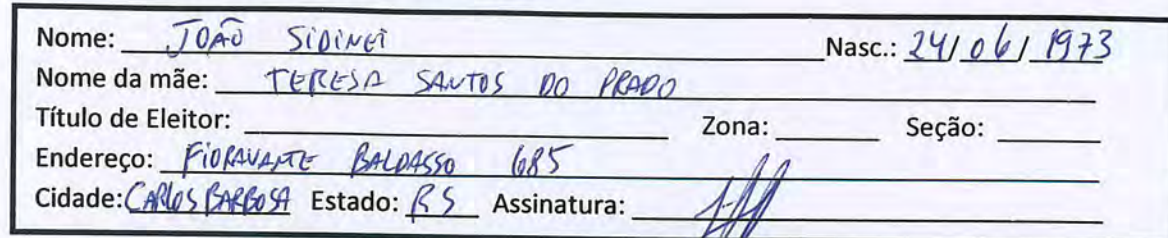 Nome: JOÃO SIDINEI Nasc.: 24/06/1973
Nome da mãe: TERESA SANTOS DO PRADO
Título de Eleitor: Zona: Seção:
Endereço: FIORAVANTE BALDASSO 685
Cidade: CARLOS BARBOSA Estado: RS Assinatura: